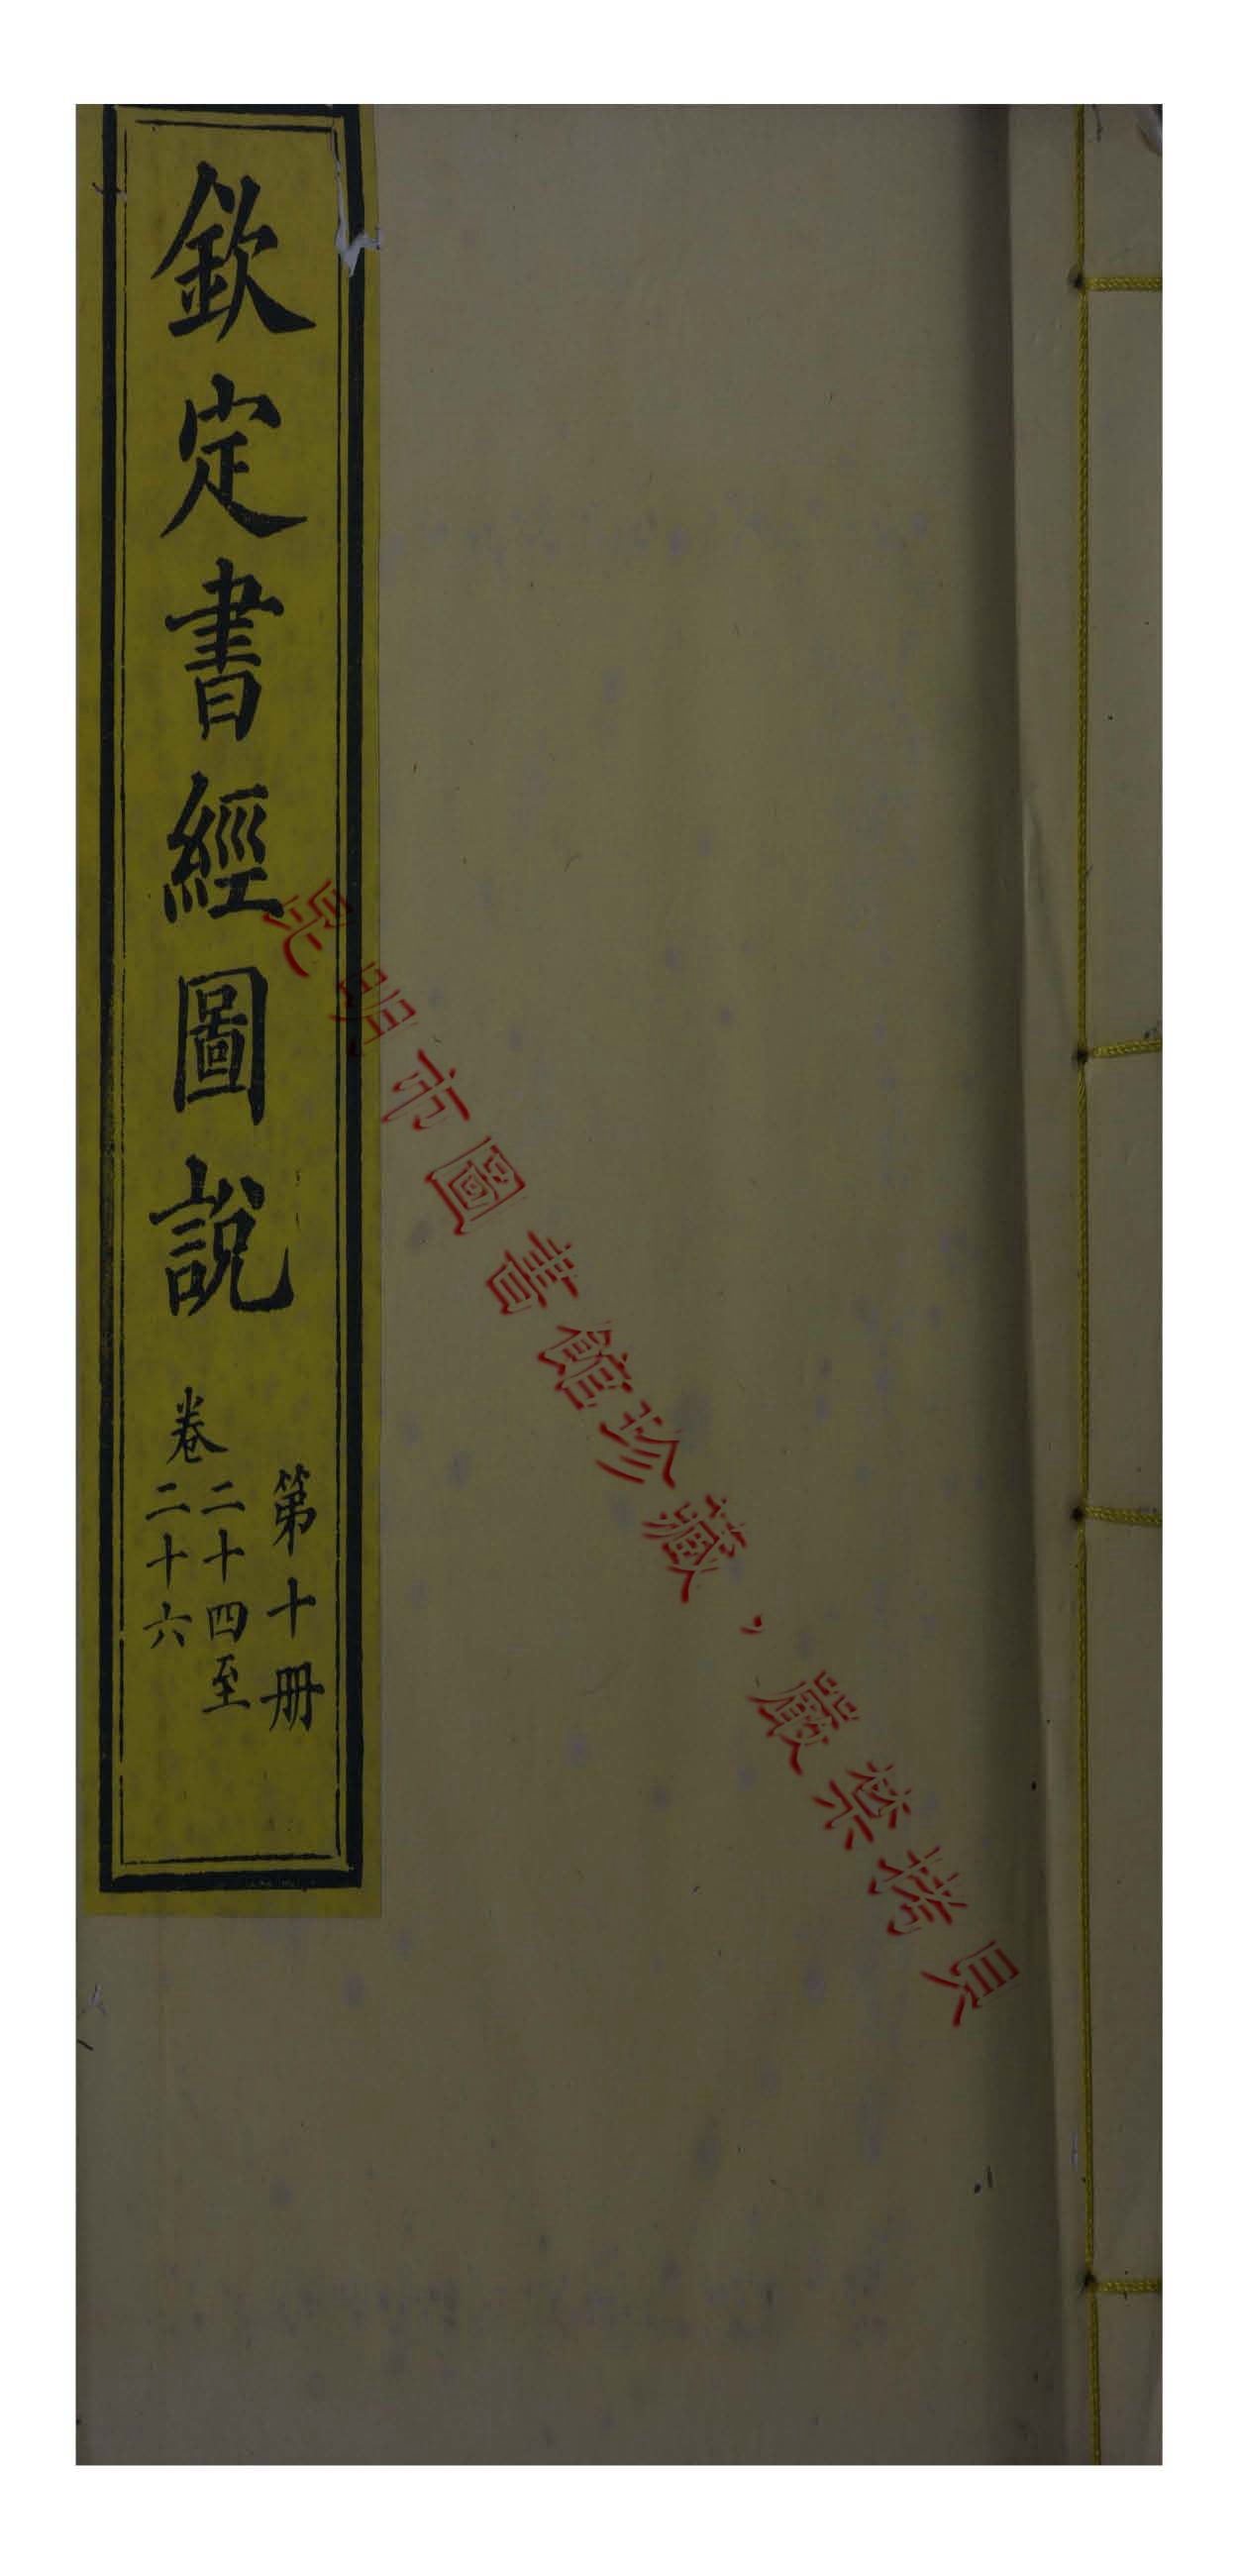 欽定書經圖說
第十册
卷二十四至
二十六
昆明市圖書館珍藏，嚴禁拷貝